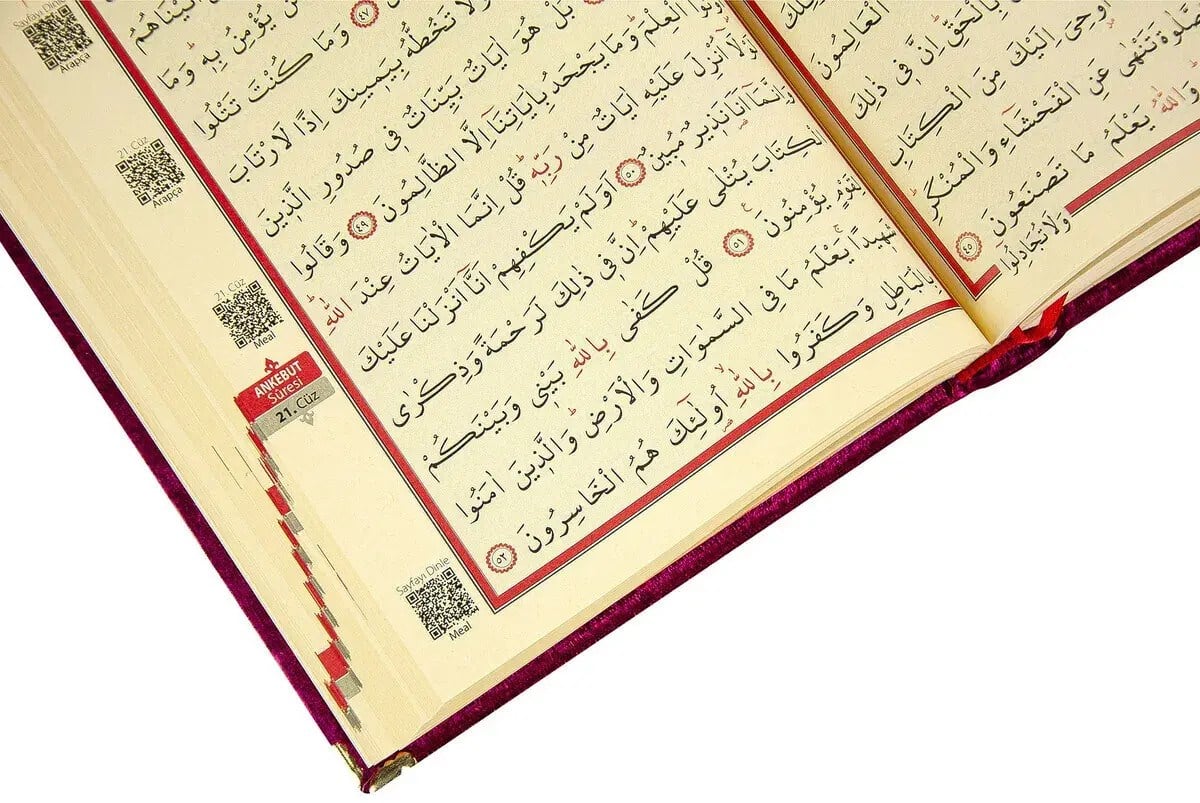 الْعَالِمُونَ
بِالْحَقِّ اِنَّ فٖى ذٰلِكَ
اُوحِىَ اِلَيْكَ مِنَ الْكِتَابِ
تَنْهٰى عَنِ الْفَحْشَٓاءِ وَالْمُنْكَرِ
وَاللّٰهُ يَعْلَمُ مَا تَصْنَعُونَ ٤٥
وَلَا تُجَادِلُٓوا
اٰتَيْنَاهُمُ
مَنْ يُؤْمِنُ بِهٖ وَمَا
٤٧ وَمَا كُنْتَ تَتْلُوا
وَلَا تَخُطُّهُ بِيَمٖينِكَ اِذًا لَارْتَابَ
بَلْ هُوَ اٰيَاتٌ بَيِّنَاتٌ فٖى صُدُورِ الَّذٖينَ
الْعِلْمَ وَمَا يَجْحَدُ بِاٰيَاتِنَٓا اِلَّا الظَّالِمُونَ ٤٩ وَقَالُوا
اُنْزِلَ عَلَيْهِ اٰيَاتٌ مِنْ رَبِّهٖ قُلْ اِنَّمَا الْاٰيَاتُ عِنْدَ اللّٰهِ
وَاِنَّمَٓا اَنَا نَذٖيرٌ مُبٖينٌ ٥٠ اَوَلَمْ يَكْفِهِمْ اَنَّٓا اَنْزَلْنَا عَلَيْكَ
الْكِتَابَ يُتْلٰى عَلَيْهِمْ اِنَّ فٖى ذٰلِكَ لَرَحْمَةً وَذِكْرٰى
لِقَوْمٍ يُؤْمِنُونَ ٥١ قُلْ كَفٰى بِاللّٰهِ بَيْنٖى وَبَيْنَكُمْ
شَهٖيدًا يَعْلَمُ مَا فِى السَّمٰوَاتِ وَالْاَرْضِ وَالَّذٖينَ اٰمَنُوا
بِالْبَاطِلِ وَكَفَرُوا بِاللّٰهِ اُولٰٓئِكَ هُمُ الْخَاسِرُونَ ٥٢
Sayfayı Dinle
Arapça
21. Cüz
Arapça
21. Cüz
Meal
ANKEBUT
Sûresi
21. Cüz
Sayfayı Dinle
Meal